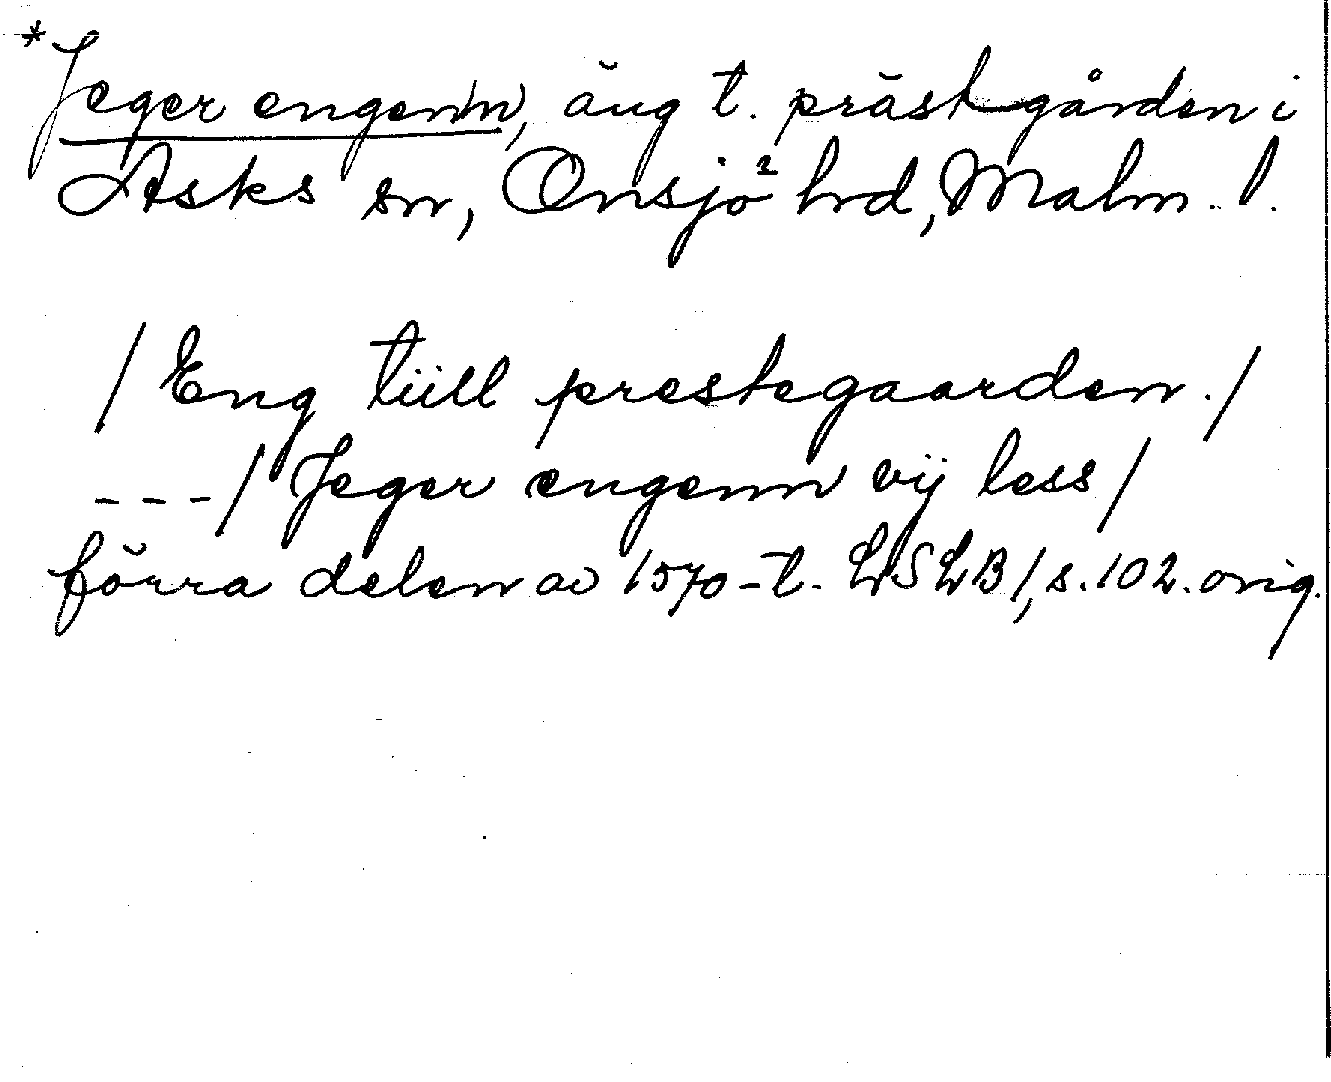 *Jeger engen(n), äng t. prästgården i
Asks sn, Onsjö hrd, Malm. l.
/ Eng tiill prestegaarden. /
---/ Jeger engenn vij less /
förra delen av 1570-t. LSLB 1, s. 102. orig.